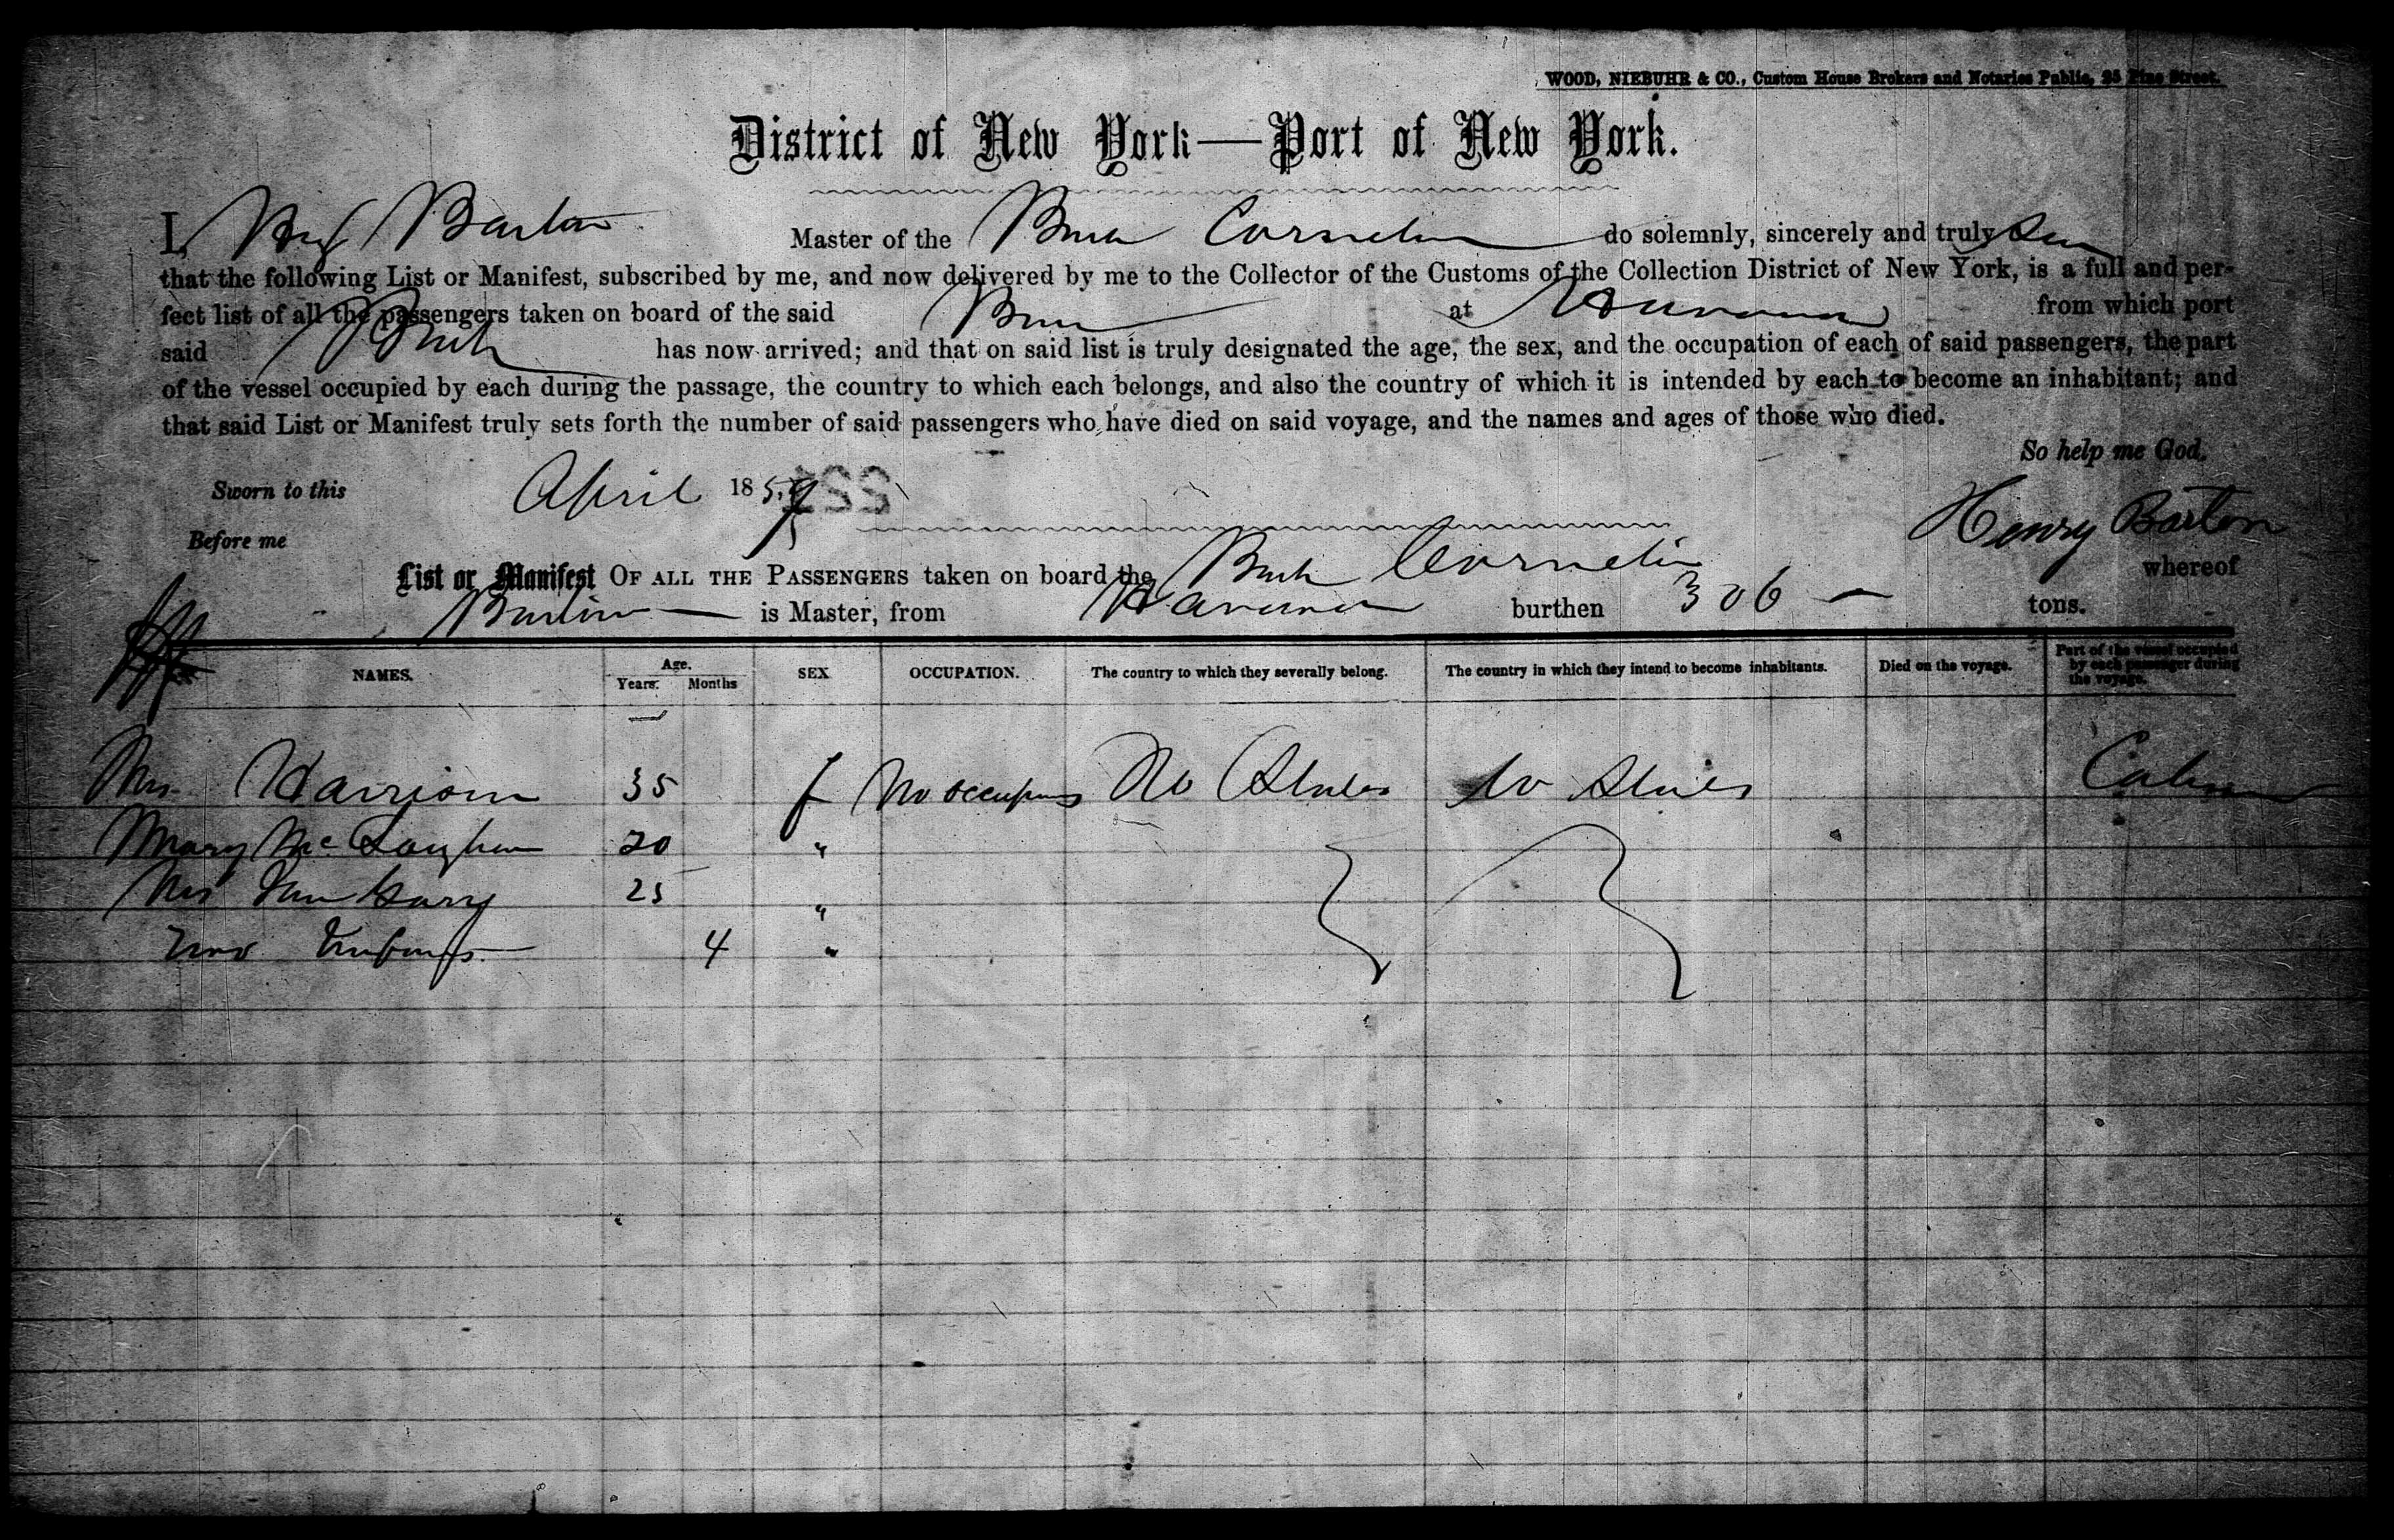 WOOD, NIEBUHR & CO., Custom House Brokers and Notaries Public, 25 Pine Street.
District of New York—Port of New York.
I, Barton Master of the Bark Cornelia do solemnly, sincerely and truly
that the following List or Manifest, subscribed by me, and now delivered by me to the Collector of the Customs of the Collection District of New York, is a full and per-
fect list of all the passengers taken on board of the said Bark at Havana from which port
said Bark has now arrived; and that on said list is truly designated the age, the sex, and the occupation of each of said passengers, the part
of the vessel occupied by each during the passage, the country to which each belongs, and also the country of which it is intended by each to become an inhabitant; and
that said List or Manifest truly sets forth the number of said passengers who have died on said voyage, and the names and ages of those who died.
So help me God.
Sworn to this April 1859
Henry Barton
Before me
List or Manifest OF ALL THE PASSENGERS taken on board the Bark Cornelia whereof
Barton is Master, from Havana burthen 306 tons.
NAMES. Age. Years. Months SEX OCCUPATION. The country to which they severally belong. The country in which they intend to become inhabitants. Died on the voyage. Part of the vessel occupied by each passenger during the voyage.
Mrs Harrison 35 f No occupns States States Cabin
Mary 20 "
Mrs 25 "
Two Infants 4 "